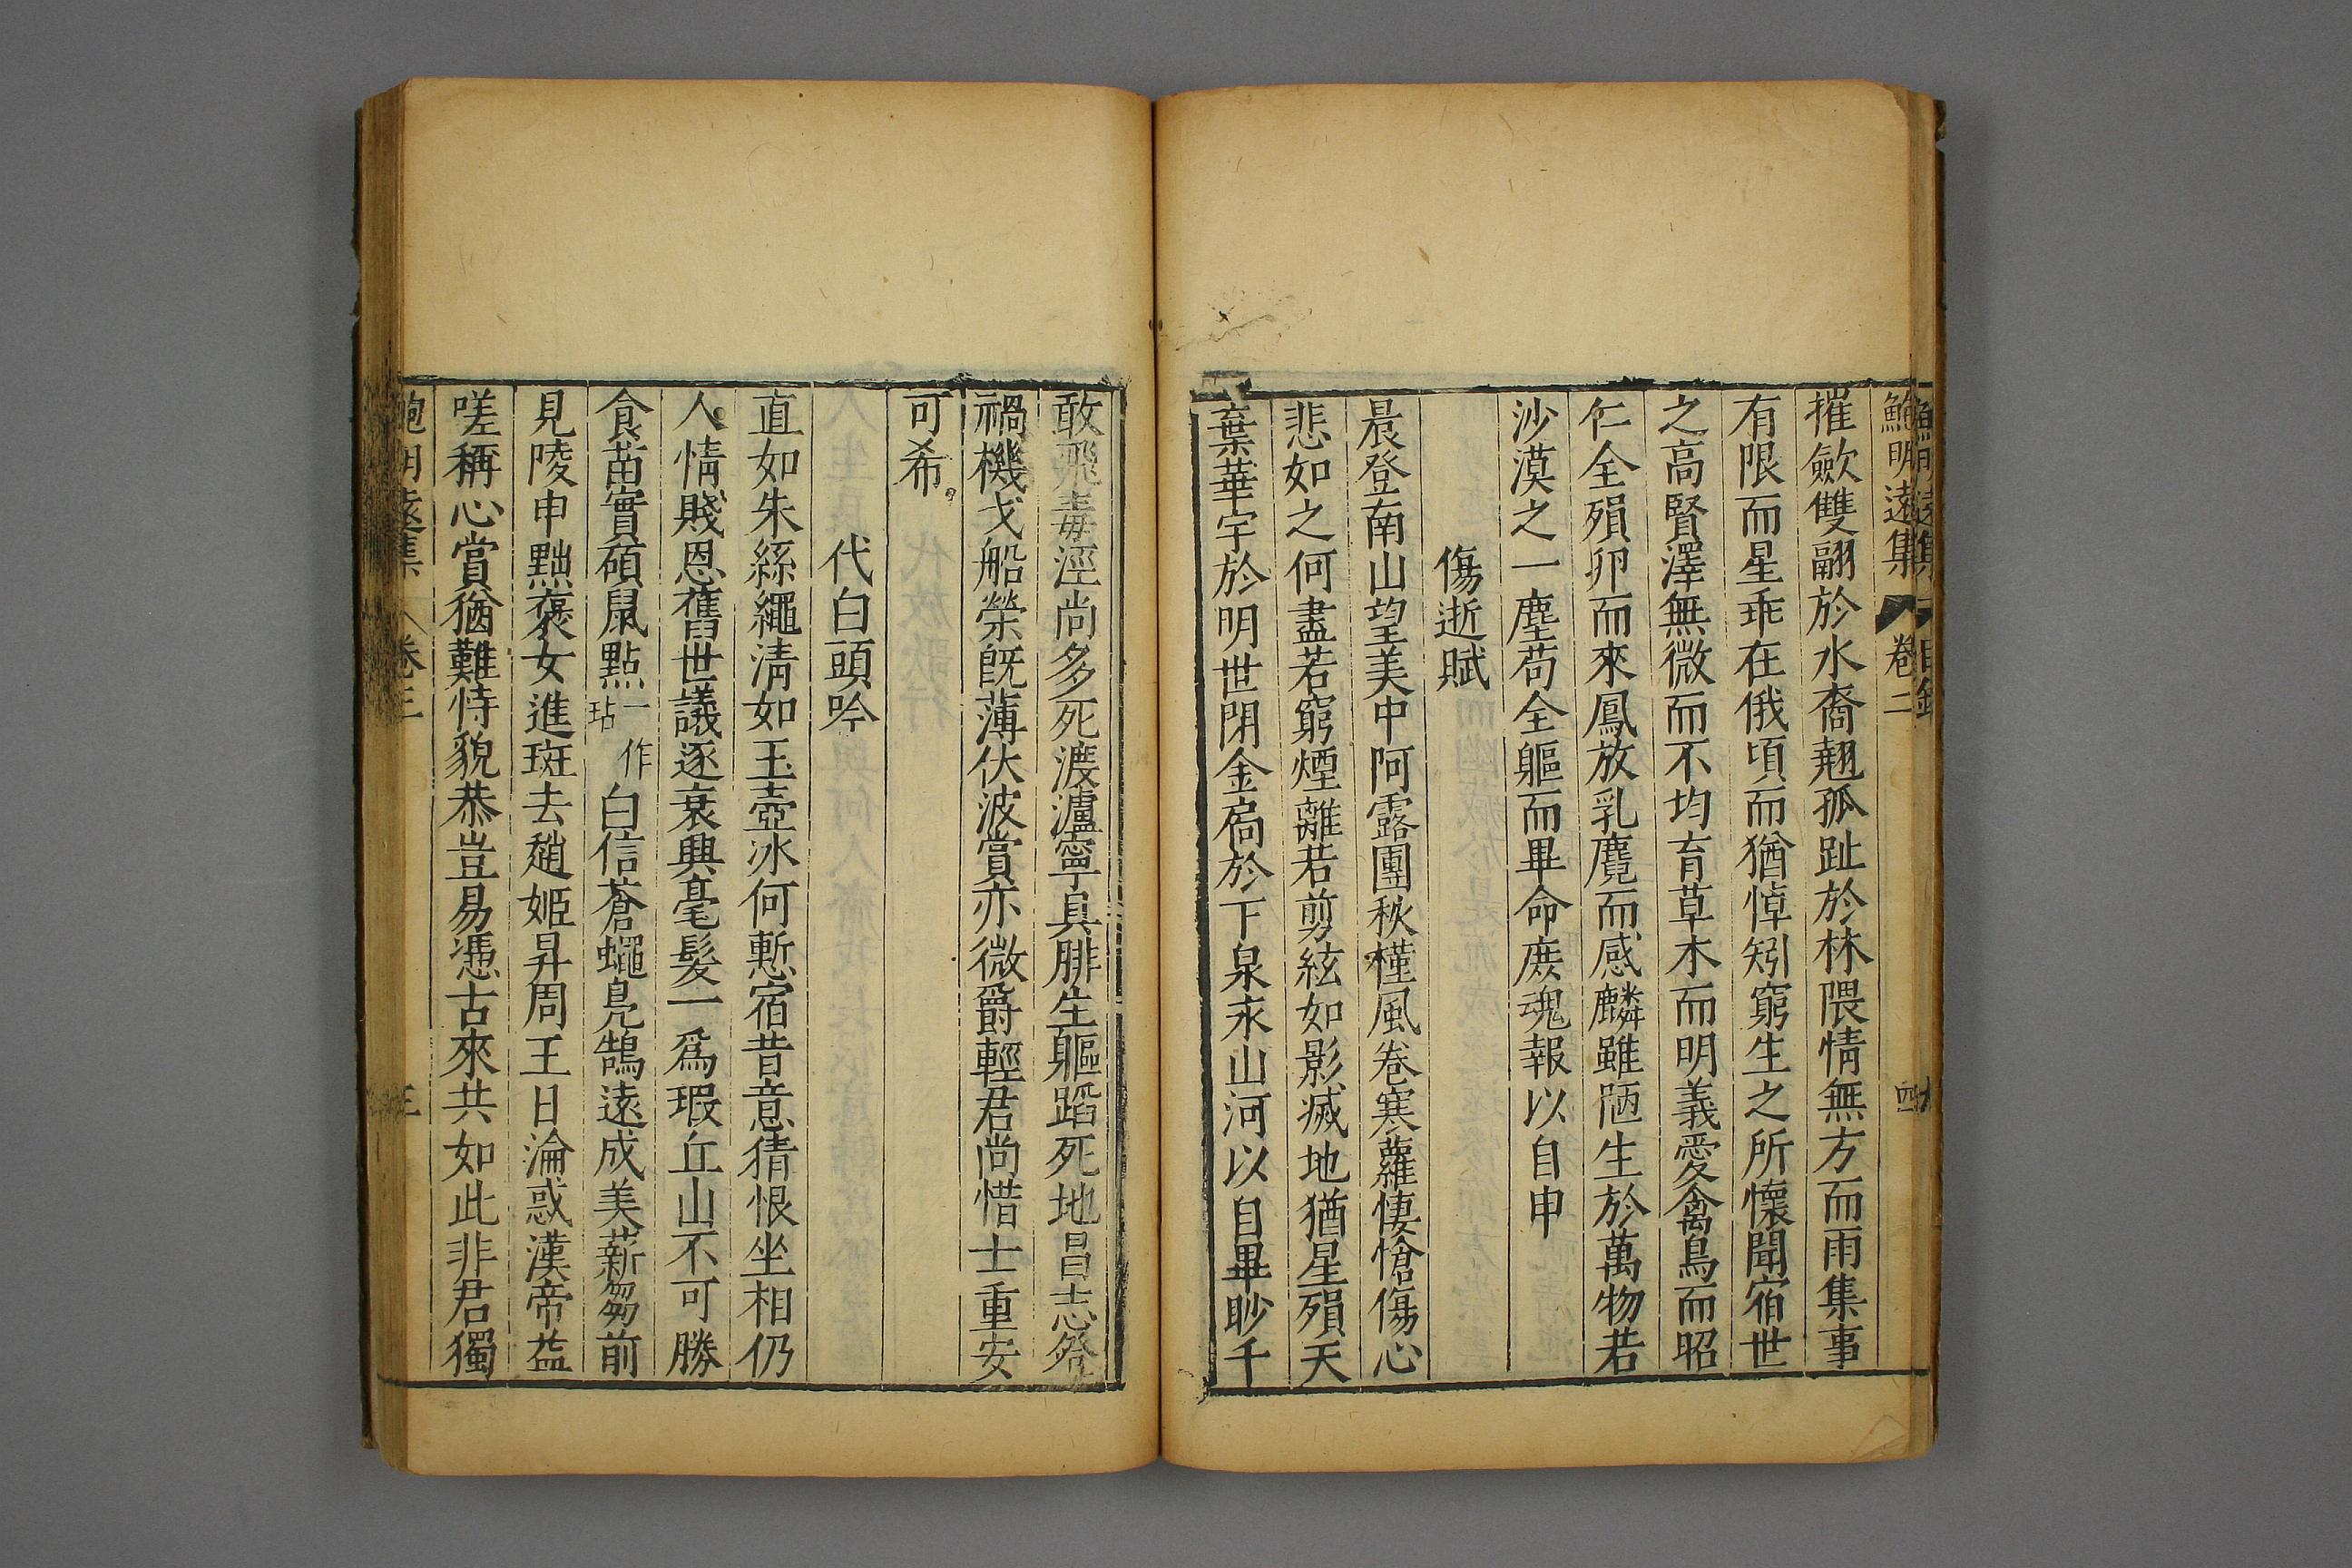 鮑明遠集 卷二 四
摧歛雙翮於水裔翹孤趾於林隈情無方而雨集事
有限而星乖在俄頃而猶悼矧窮生之所懷聞宿世
之高賢澤無微而不均育草木而明義愛禽鳥而昭
仁全殞卵而來鳳放乳麑而感麟雖陋生於萬物若
沙漠之一塵苟全軀而畢命庶魂報以自申
傷逝賦
晨登南山望美中阿露團秋槿風卷寒蘿悽愴傷心
悲如之何盡若窮煙離若剪絃如影滅地猶星殞天
棄華宇於明世閉金扃於下泉永山河以自畢眇千
敢飛毒淫尚多死渡瀘寧具腓生軀蹈死地昌志登
禍機戈船榮旣薄伏波賞亦微爵輕君尚惜士重安
可希
代白頭吟
直如朱絲繩淸如玉壺冰何慙宿昔意猜恨坐相仍
人情賤恩舊世議逐衰興毫髮一爲瑕丘山不可勝
食苗實碩鼠點一作玷白信蒼蠅鳧鵠遠成美薪芻前
見陵申黜褒女進班去趙姬昇周王日淪惑漢帝益
嗟稱心賞猶難恃貌恭豈易憑古來共如此非君獨
鮑明遠集 卷三 三